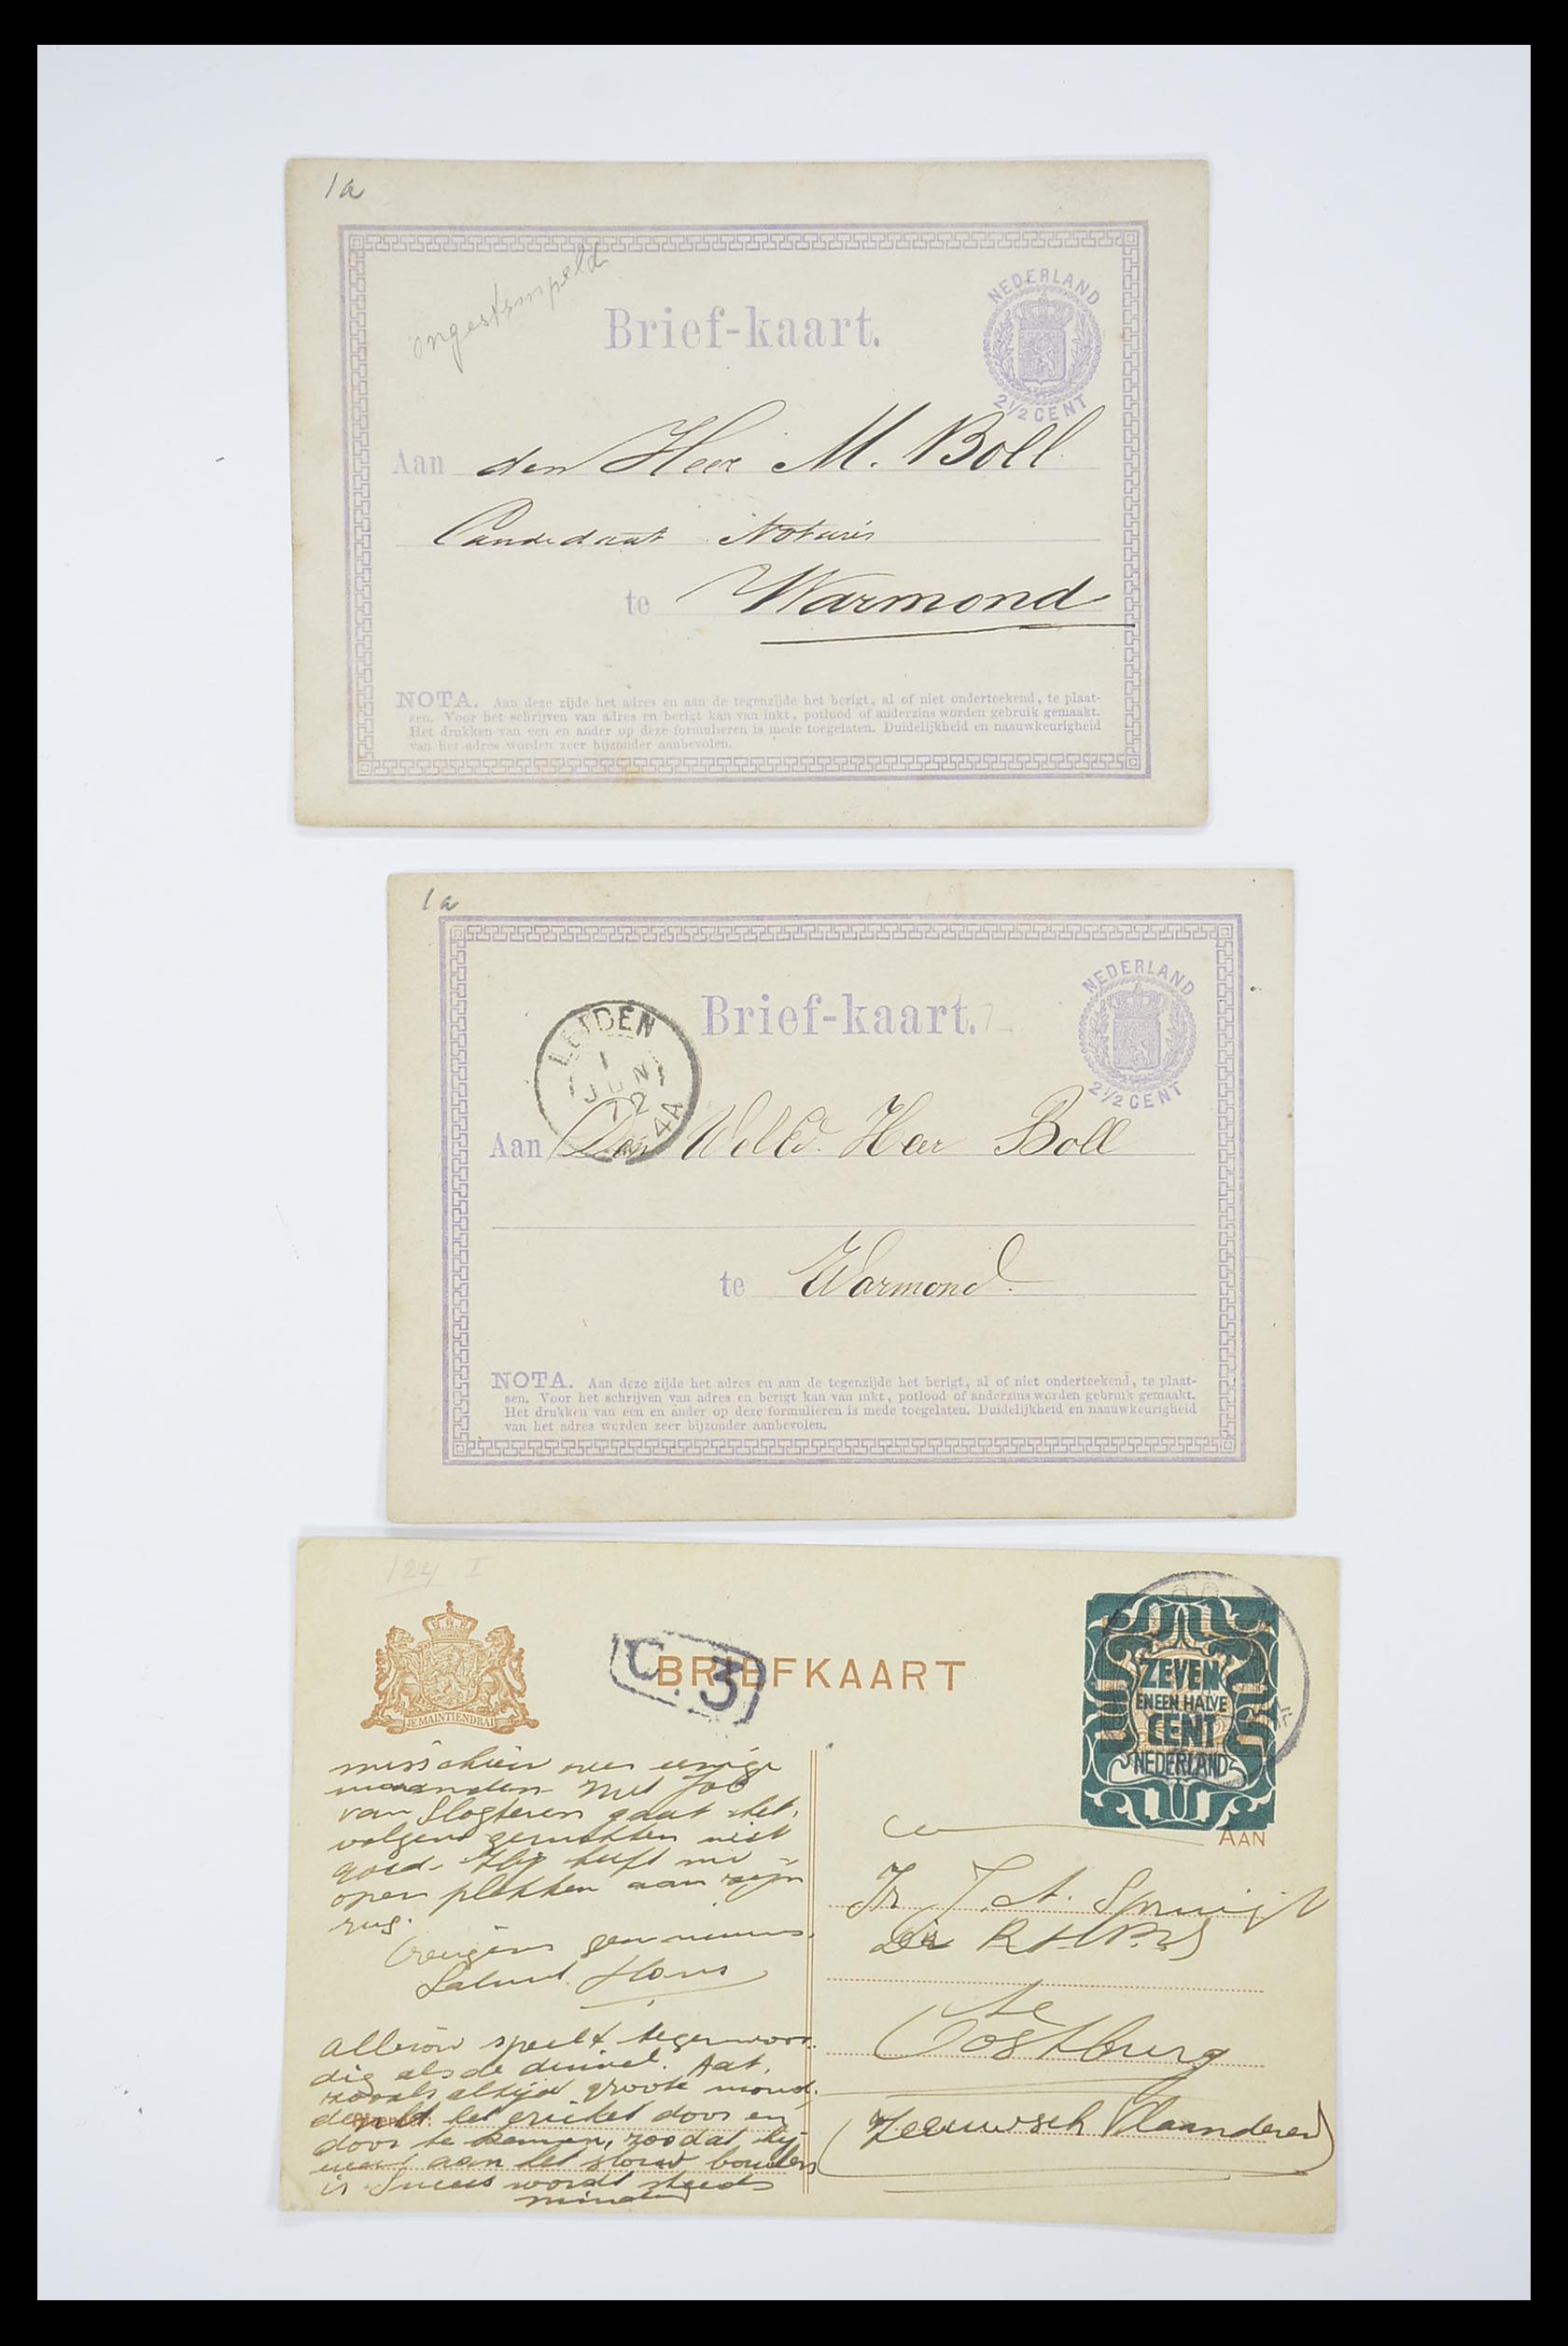 1a
ongestempeld
NEDERLAND
Brief-kaart.
2½ CENT
Aan den Heer M. Boll
Candidaat Notaris
te Warmond
NOTA. Aan deze zijde het adres en aan de tegenzijde het berigt, al of niet onderteekend, te plaat-
sen. Voor het schrijven van adres en berigt kan van inkt, potlood of anderzins worden gebruik gemaakt.
Het drukken van een en ander op deze formulieren is mede toegelaten. Duidelijkheid en naauwkeurigheid
van het adres worden zeer bijzonder aanbevolen.
1a
NEDERLAND
Brief-kaart.
2½ CENT
LEIDEN
1
JUN
72
4A
Aan Den WelEd. Heer Boll
te Warmond.
NOTA. Aan deze zijde het adres en aan de tegenzijde het berigt, al of niet onderteekend, te plaat-
sen. Voor het schrijven van adres en berigt kan van inkt, potlood of anderzins worden gebruik gemaakt.
Het drukken van een en ander op deze formulieren is mede toegelaten. Duidelijkheid en naauwkeurigheid
van het adres worden zeer bijzonder aanbevolen.
124 I
JE MAINTIENDRAI
C.3
BRIEFKAART
ZEVEN
EN EEN HALVE
CENT
NEDERLAND
AAN
misschien over eenige
maanden. Met Job
van Slogteren gaat het,
volgens geruchten niet
goed. Hij heeft nu
open plekken aan zijn
rug.
Overigens geen nieuws.
Saluut. Hans
J. A. Spruijt
te
Oostburg
(Zeeuwsch Vlaanderen)
speelt tegenwoor-
dig als de duivel. Aat,
zooals altijd groote mond,
het cricket door en
door te kennen, zoodat hij
aan het slow bowlen
is. Succes wordt steeds
minder